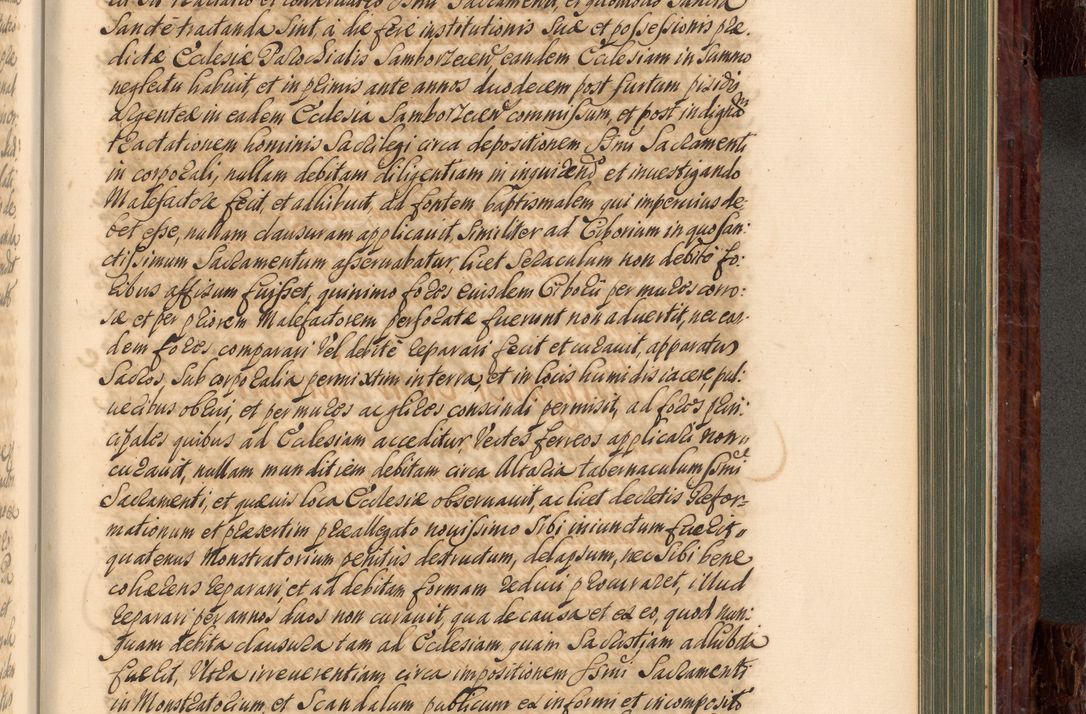 Sancte tractanda sint, a die fere institutionis suæ et possessionis præ-
dictæ Ecclesiæ Parochialis Samborzecen, eandem Ecclesiam in summo
neglectu habuit, et in primis ante annos duodecem post furtum pixidis
argenteæ in eadem Ecclesia Samborzecen commissum, et post indignam
tractationem hominis Sacrilegi circa depositionem Ssmi Sacramenti
in corporali, nullam debitam diligentiam in inquirendo et investigando
Malefactore fecit, et adhibuit, ad fontem baptismalem qui impervius de-
bet esse, nullam clausuram applicavit, similiter ad Ciborium in quo San-
ctissimum Sacramentum asservabatur, licet seraculum non debite fo-
ribus affixum fuisset, quinimo fores eiusdem Ciborii per mures corro-
sæ et per priorem Malefactorem perforatæ fuerunt non advertit, nec eas-
dem fores comparari vel debite reparari fecit et curavit, apparatus
Sacros, sub corporalia permixtim in terra, et in locis humidis iacere pul-
veribus obrui, et per mures ac glires conscindi permisit, ad fores prin-
cipales quibus ad Ecclesiam acceditur, vectes ferreos applicari non
curavit, nullam munditiem debitam circa Altaria tabernaculum Ssmi
Sacramenti, et quævis loca Ecclesiæ observavit, ac licet decretis Refor-
mationum et præsertim præallegato novissimo sibi iniunctum fuerit
quatenus Monstratorium penitus destructum, delapsum, nec sibi bene
cohærens reparari et ad debitam formam reduci procuraret, illud
reparari per annos duos non curavit, qua de causa et ex eo, quod nun-
quam debita clausura tam ad Ecclesiam quam Sacristiam adhibita
fuerit, ultra irreverentiam circa impositionem Ssmi Sacramenti
in Monstratorium et Scandalum publicum ex informi et incomposito